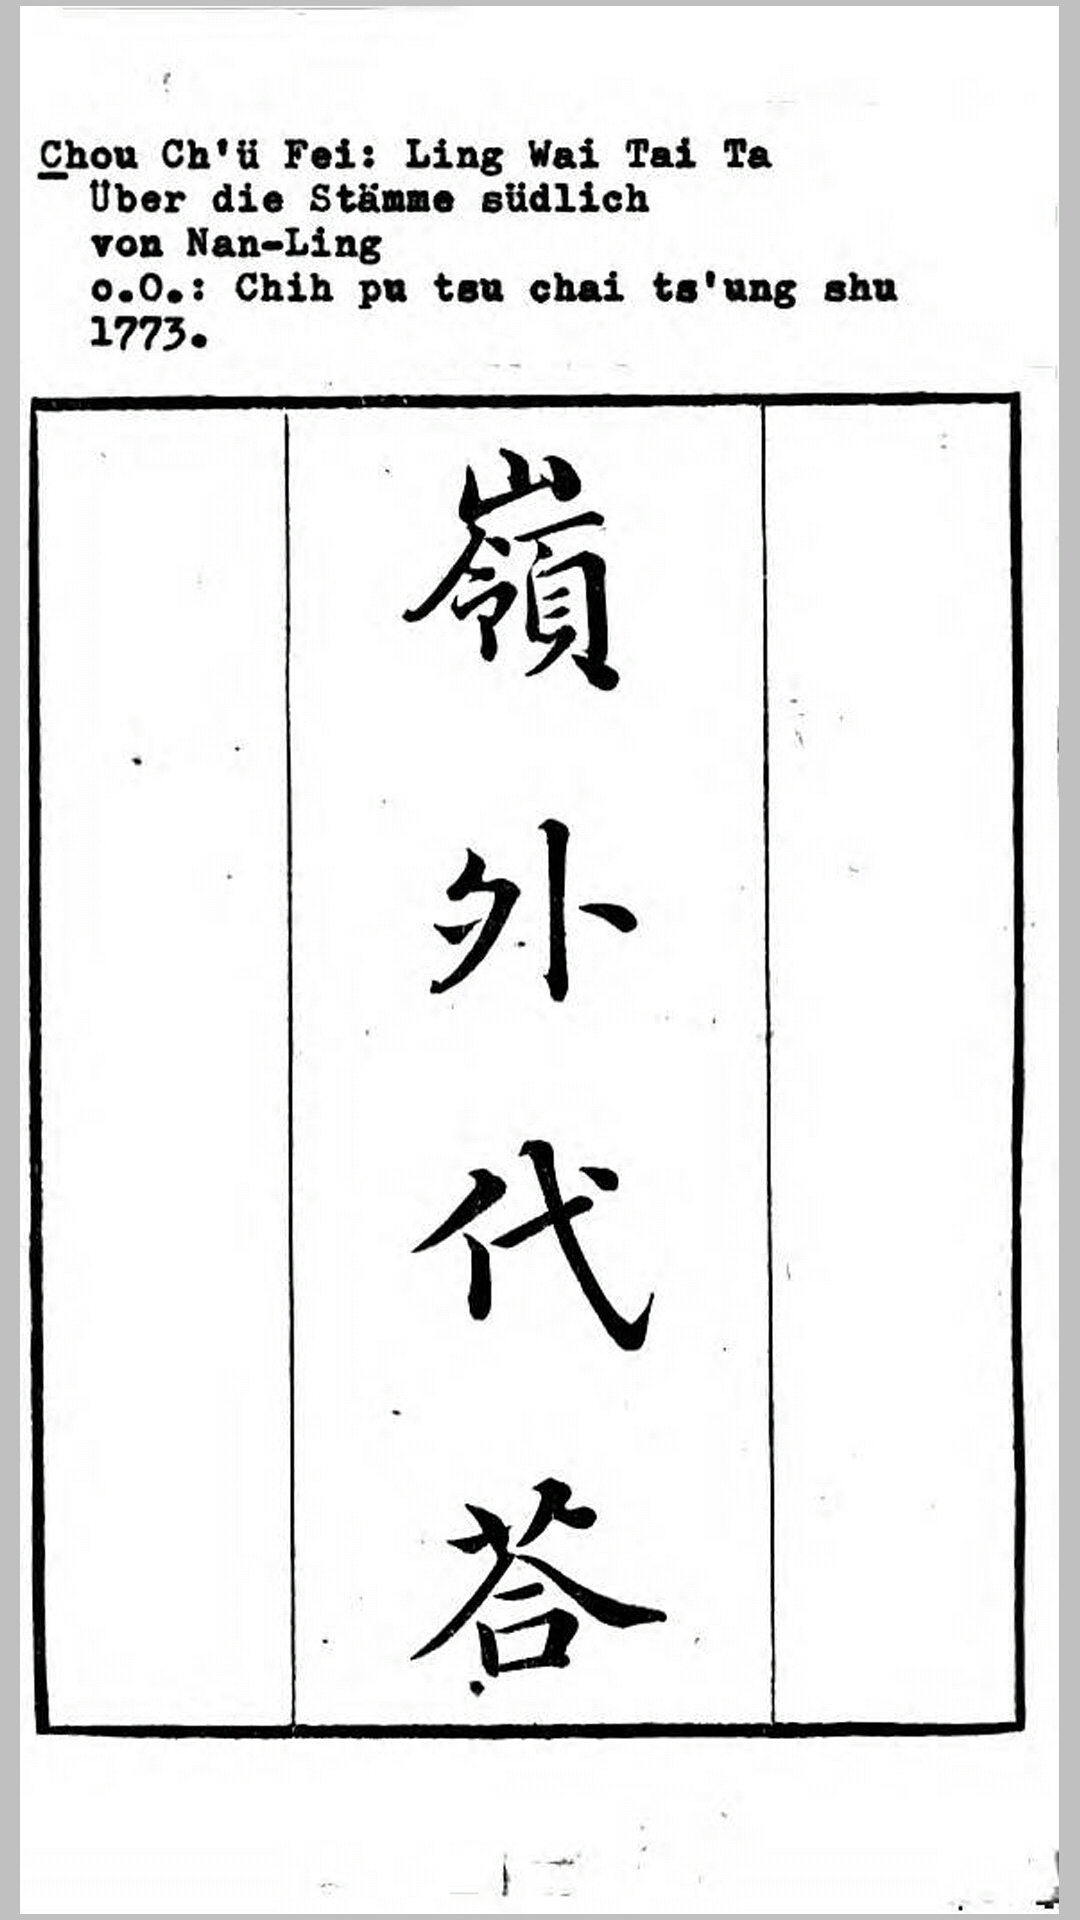 Chou Ch'ü Fei: Ling Wai Tai Ta
Über die Stämme südlich
von Nan-Ling
o.O.: Chih pu tsu chai ts'ung shu
1773.
嶺外代荅